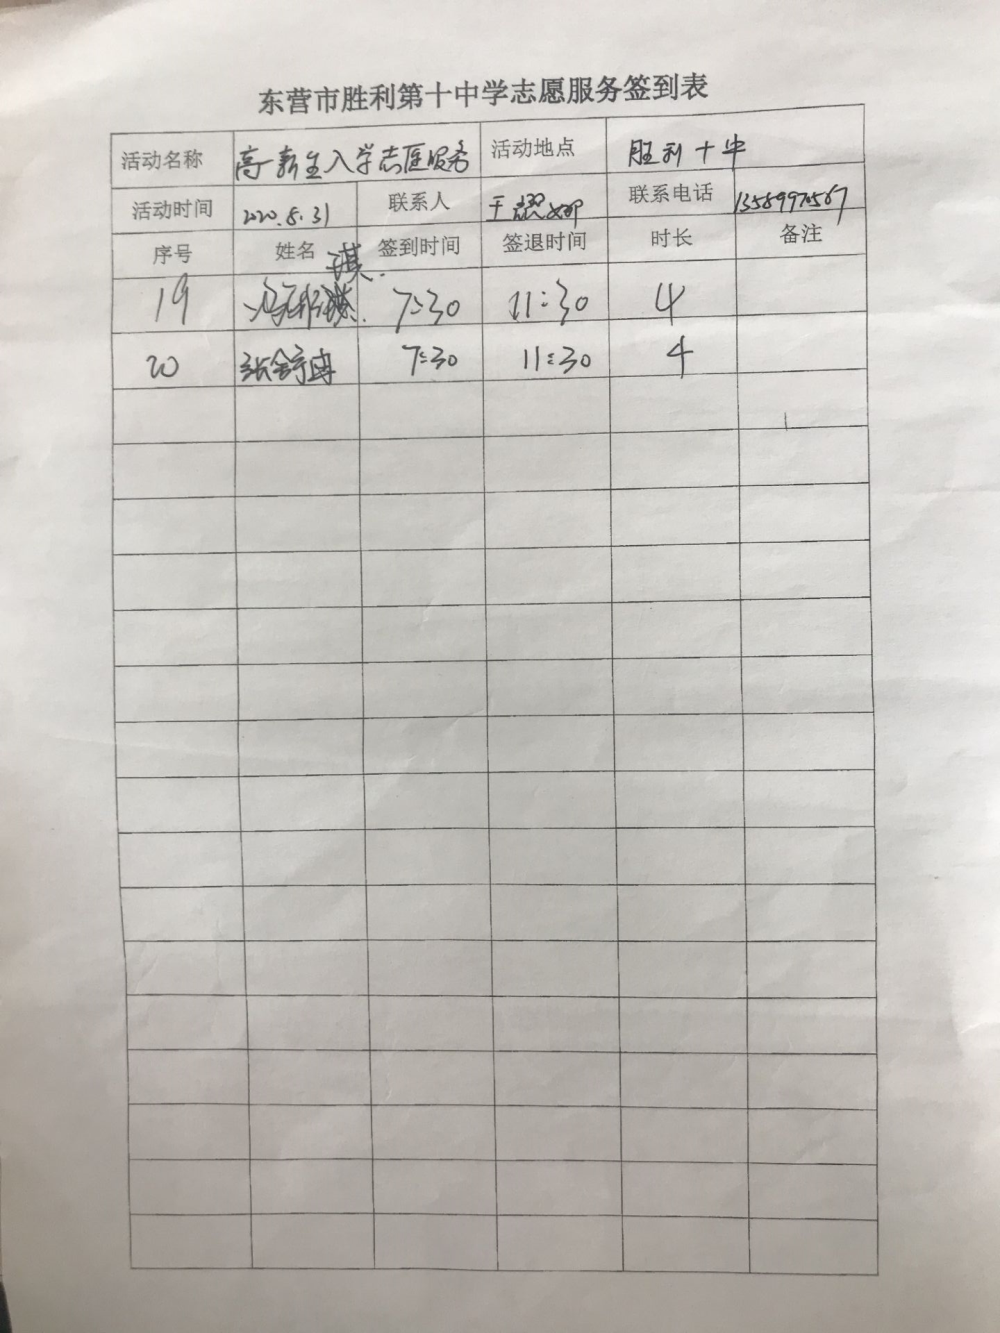 东营市胜利第十中学志愿服务签到表
活动名称 高一新生入学志愿服务 活动地点 胜利十中
活动时间 2020.8.31 联系人 联系电话 13589970567
序号 姓名 签到时间 签退时间 时长 备注
琪
19 7:30 11:30 4
20 7:30 11:30 4